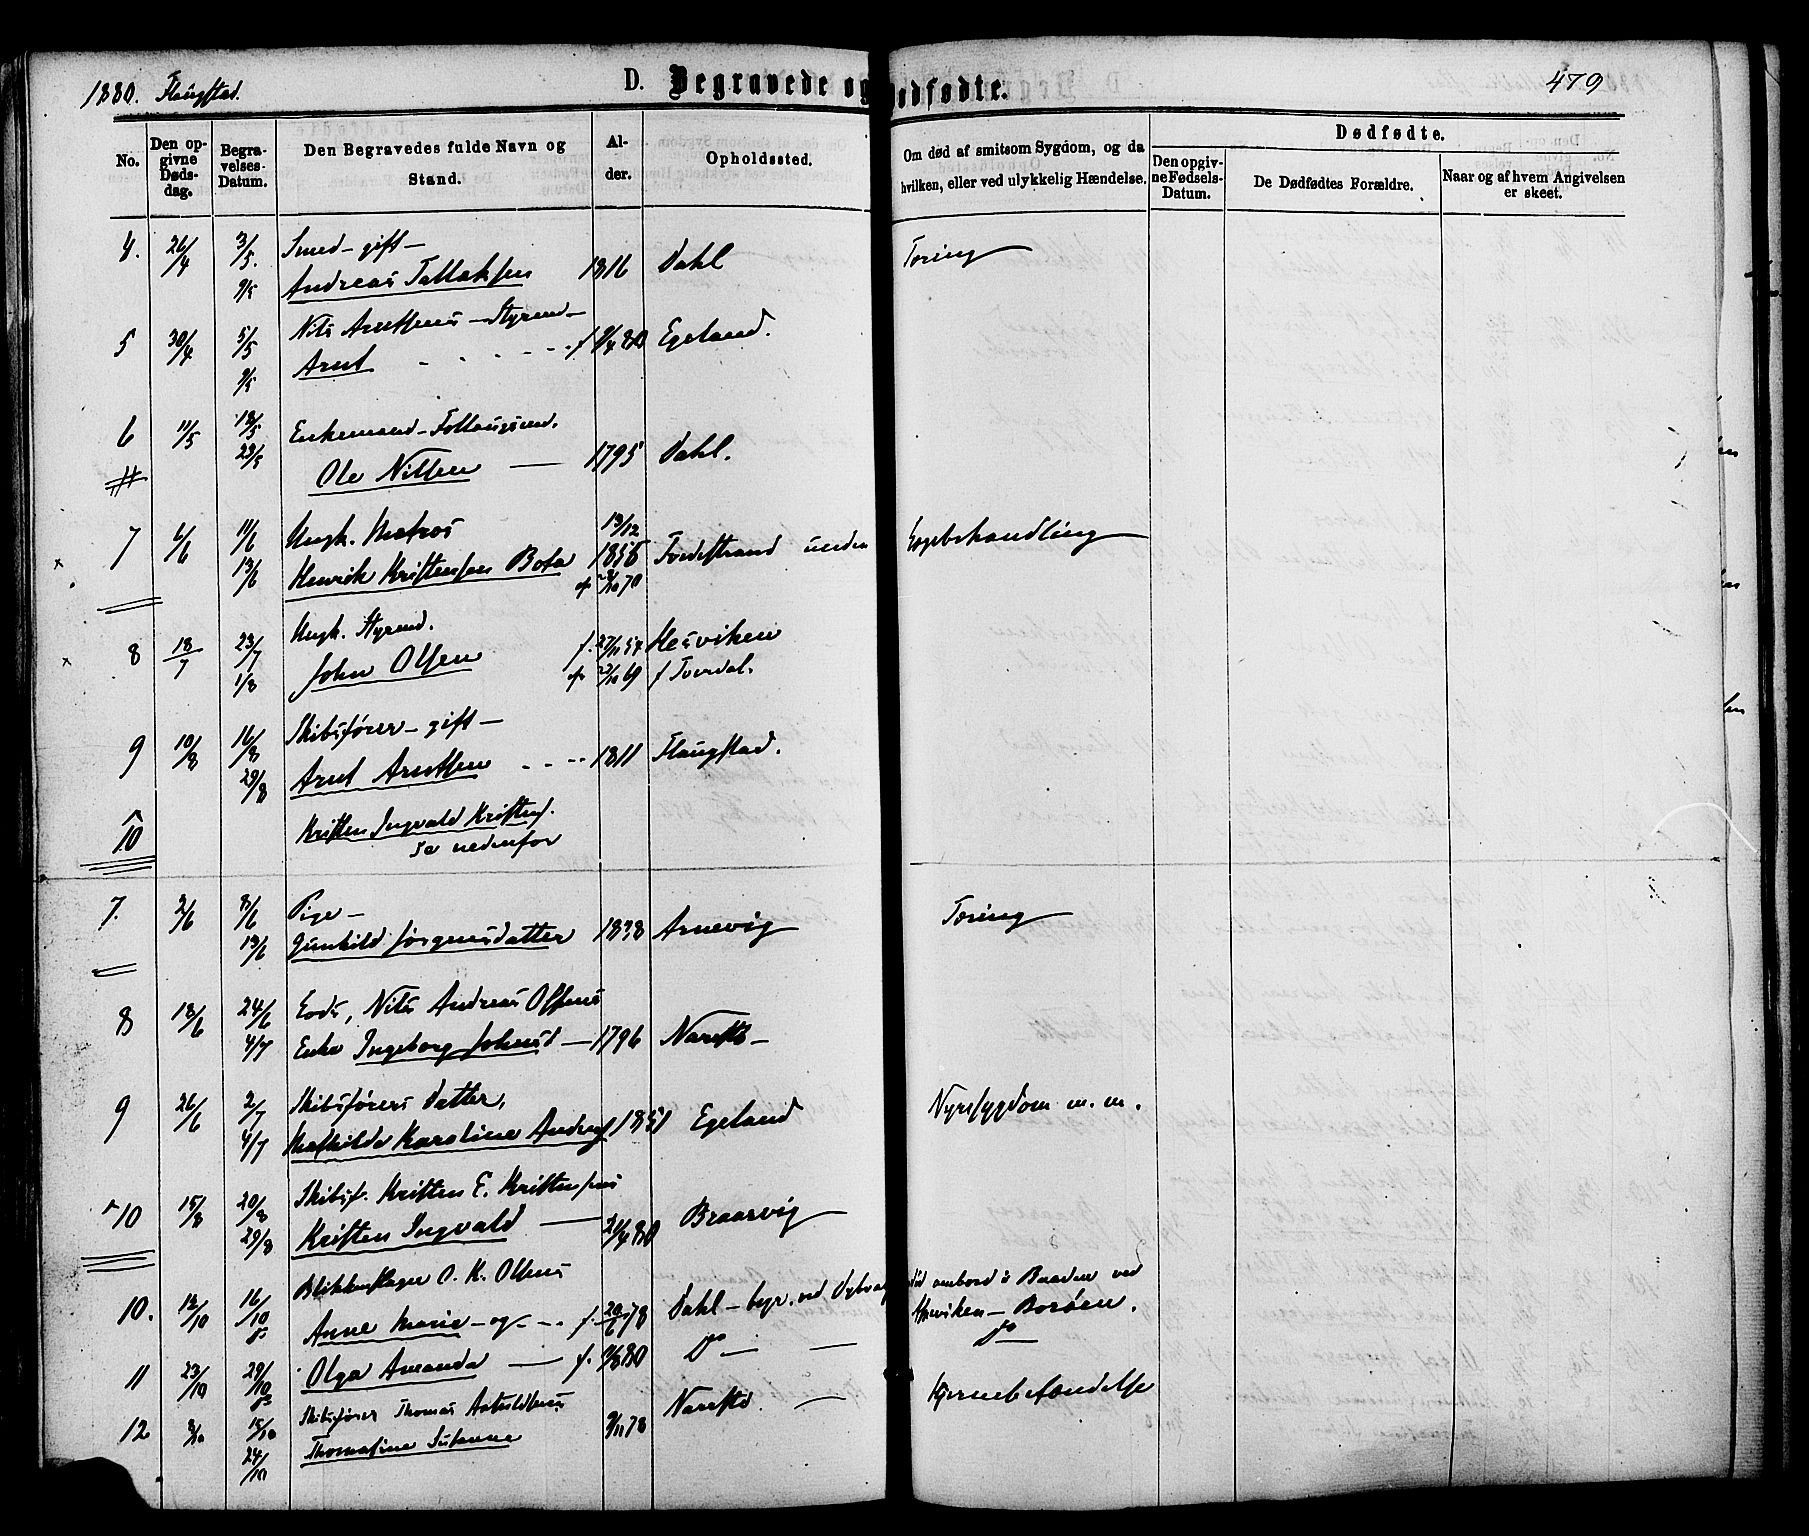 1880. Flaugstad.
D. Begravede og Dødfødte.
479
No.
Den opgivne Dødsdag.
Begravelses-Datum.
Den Begravedes fulde Navn og Stand.
Alder.
Opholdssted.
Om død af smitsom Sygdom, og da hvilken, eller ved ulykkelig Hændelse.
Dødfødte.
Den opgivne Fødsels-Datum.
De Dødfødtes Forældre.
Naar og af hvem Angivelsen er skeet.
4. 26/4 3/5. Smed - gift -
9/5 Andreas Tallaksen 1816 Dahl Tæring
5 30/4 5/5 Nils Arntsens - Styrm -
9/5 Arnt f 9/4 80 Egeland.
6 11/5 18/5 Enkemand -
23/5 Ole Nilsen 1795 Dahl.
7 6/6 11/6 Ungk. Matros 13/12
13/6 Henrik Kristensen Bota 1856 Tvedestrand under Lægebehandling
70
8 18/7 23/7 Ungk. Styrmd.
1/8 John Olsen f. 27/11 54 Hesviken
69 f Tverdal.
9 10/8 16/8 Skibsfører - gift -
29/8 Arnt Arntsen 1811 Flaugstad.
10 Kristen Ingvald Kristens.
Se nedenfor
7. 2/6 8/6 Pige -
13/6 Gunhild Jørgensdatter 1838 Arnevig Tæring
8 18/6 24/6 Lods, Nils Andreas Olsens
4/7 Enke Ingeborg Johnsd - 1796 Narestø -
9 26/6 2/7 Skibsførers Datter,
4/7 Mathilde Karoline Andreas 1851 Egeland Nyresygdom m. m.
10 15/8 20/8 Skibsf. Kristen E. Kristensens
29/8 Kristen Ingvald 21/4 80 Braarvig
Blikkenslager O. K. Olsens
10. 12/10 16/10 Anne Marie - og - f. 20/6 78 Dahl - begr. ved Dybvaag Død ombord i Baaden ved
Hesviken - Borøen.
11 23/10 29/10 Olga Amanda f. 9/8 80 Do Do
12 8/10 15/10 Skibsfører Thomas
24/10 Thomasine Susanne 9/11 78 Narestø. Hjernebetændelse